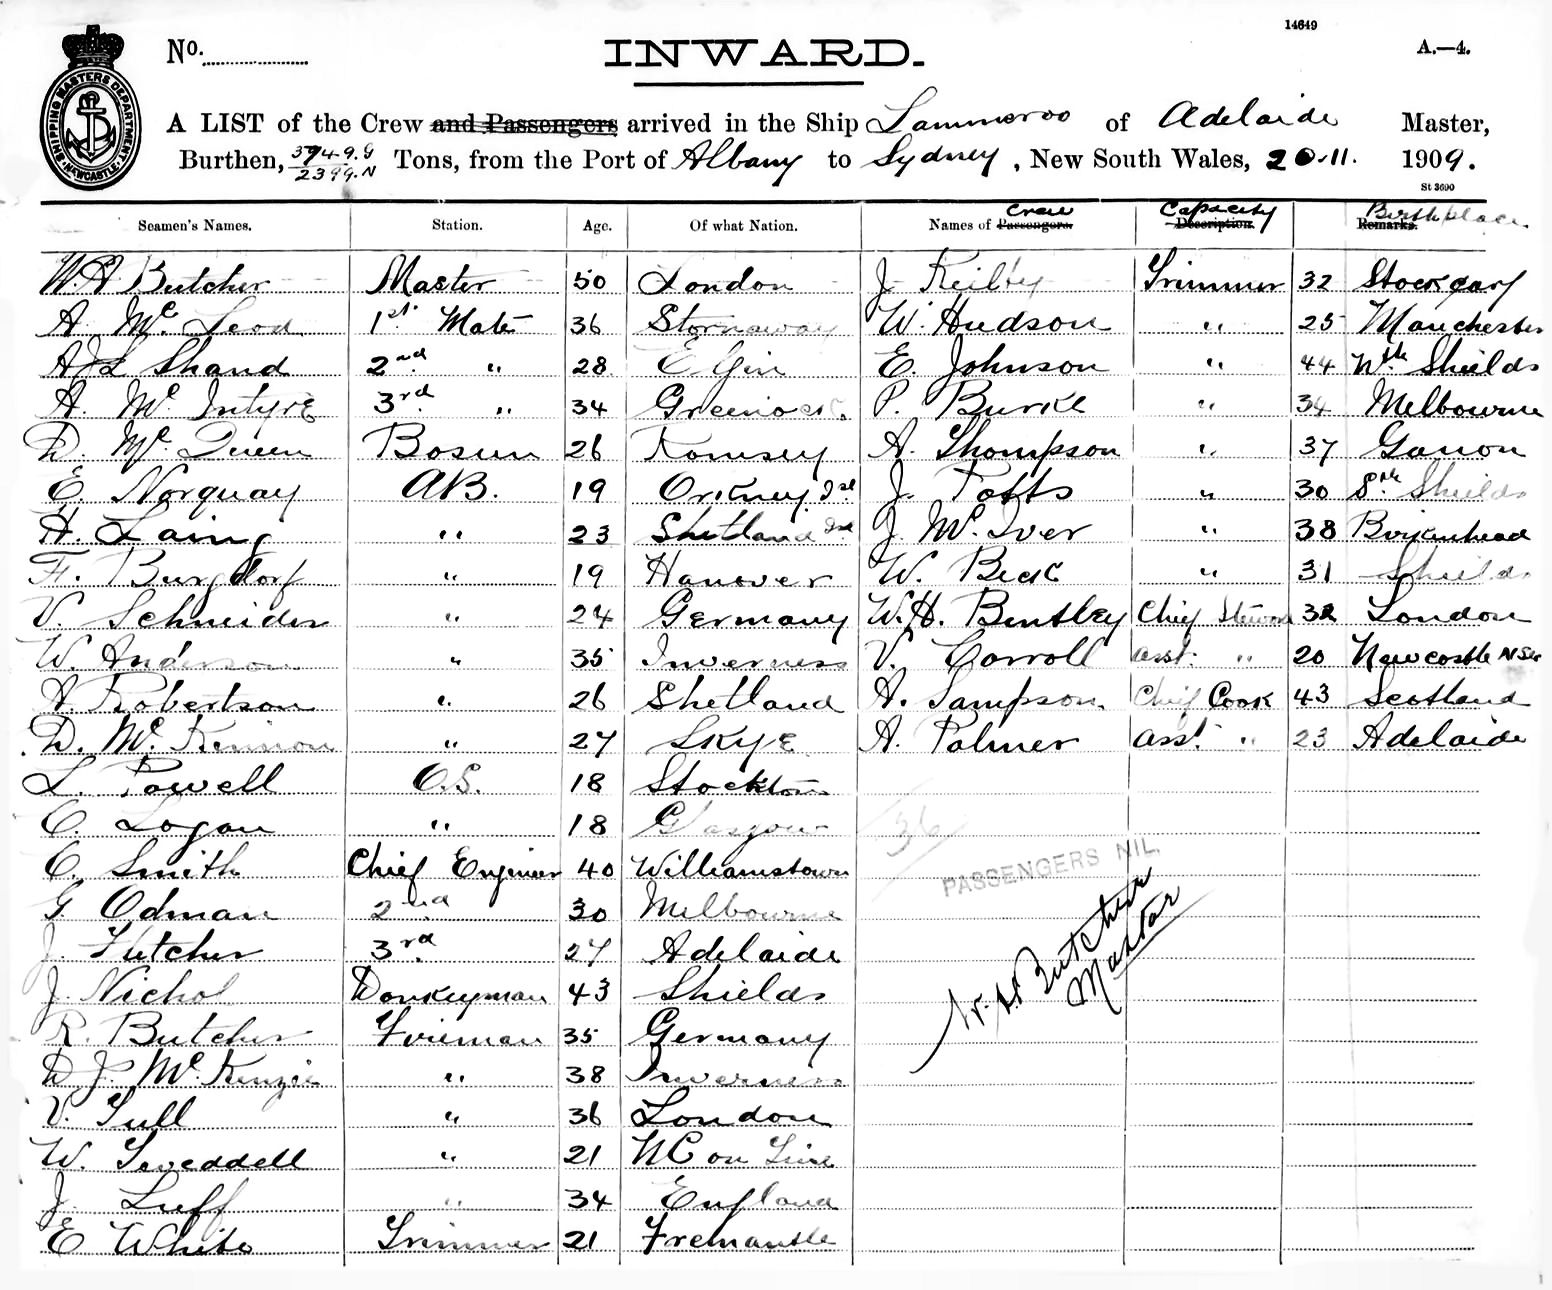 14649
No. INWARD. A.—4.
SHIPPING MASTERS DEPARTMENT. NEWCASTLE.
A LIST of the Crew and Passengers arrived in the Ship of Adelaide Master,
Burthen, 3749.G 2399.N Tons, from the Port of Albany to Sydney, New South Wales, 20.11. 1909.
St 3690
Seamen's Names. Station. Age. Of what Nation. Names of Passengers. Crew Description. Capacity Remarks. Birthplace
W.H Butcher Master 50 London J Keilty Trimmer 32
A Mc Leod 1st Mate 36 Stornaway W. Hudson " 25 Manchester
Shand 2nd " 28 Elgin E. Johnson " 44 Nth Shields
A. Mc Intyre 3rd " 34 Greenock P. Burke " 34 Melbourne
D. Mc Queen Bosun 26 Romsey A. Thompson " 37
E. Norquay AB. 19 Orkney Isl J. Potts " 30 Sth Shields
H. Laing " 23 Shetland Isl J. Mc Iver " 38 Birkenhead
F. Burgdorf " 19 Hanover W. Beck " 31 Shields
V. Schneider " 24 Germany W.H. Bentley Chief Steward 32 London
W. Anderson " 35 Inverness V. Carroll asst. " 20 Newcastle NSW
A. Robertson " 26 Shetland A. Sampson Chief Cook 43 Scotland
D. Mc Kinnon " 27 Skye A. Palmer asst. " 23 Adelaide
L. Powell O.S. 18 Stockton
C. Logan " 18 Glasgow 36
C. Smith Chief Engineer 40 Williamstown PASSENGERS NIL.
G. Odman 2nd 30 Melbourne
J. Fletcher 3rd 27 Adelaide
J. Nichol Donkeyman 43 Shields
R. Butcher Fireman 35 Germany
D J. Mc Kenzie " 38 Inverness
V. Tull " 36 London
W. Tweddell " 21 NC on Tine
J. Luff " 34 England
E White Trimmer 21 Fremantle
W.H. Butcher
Master